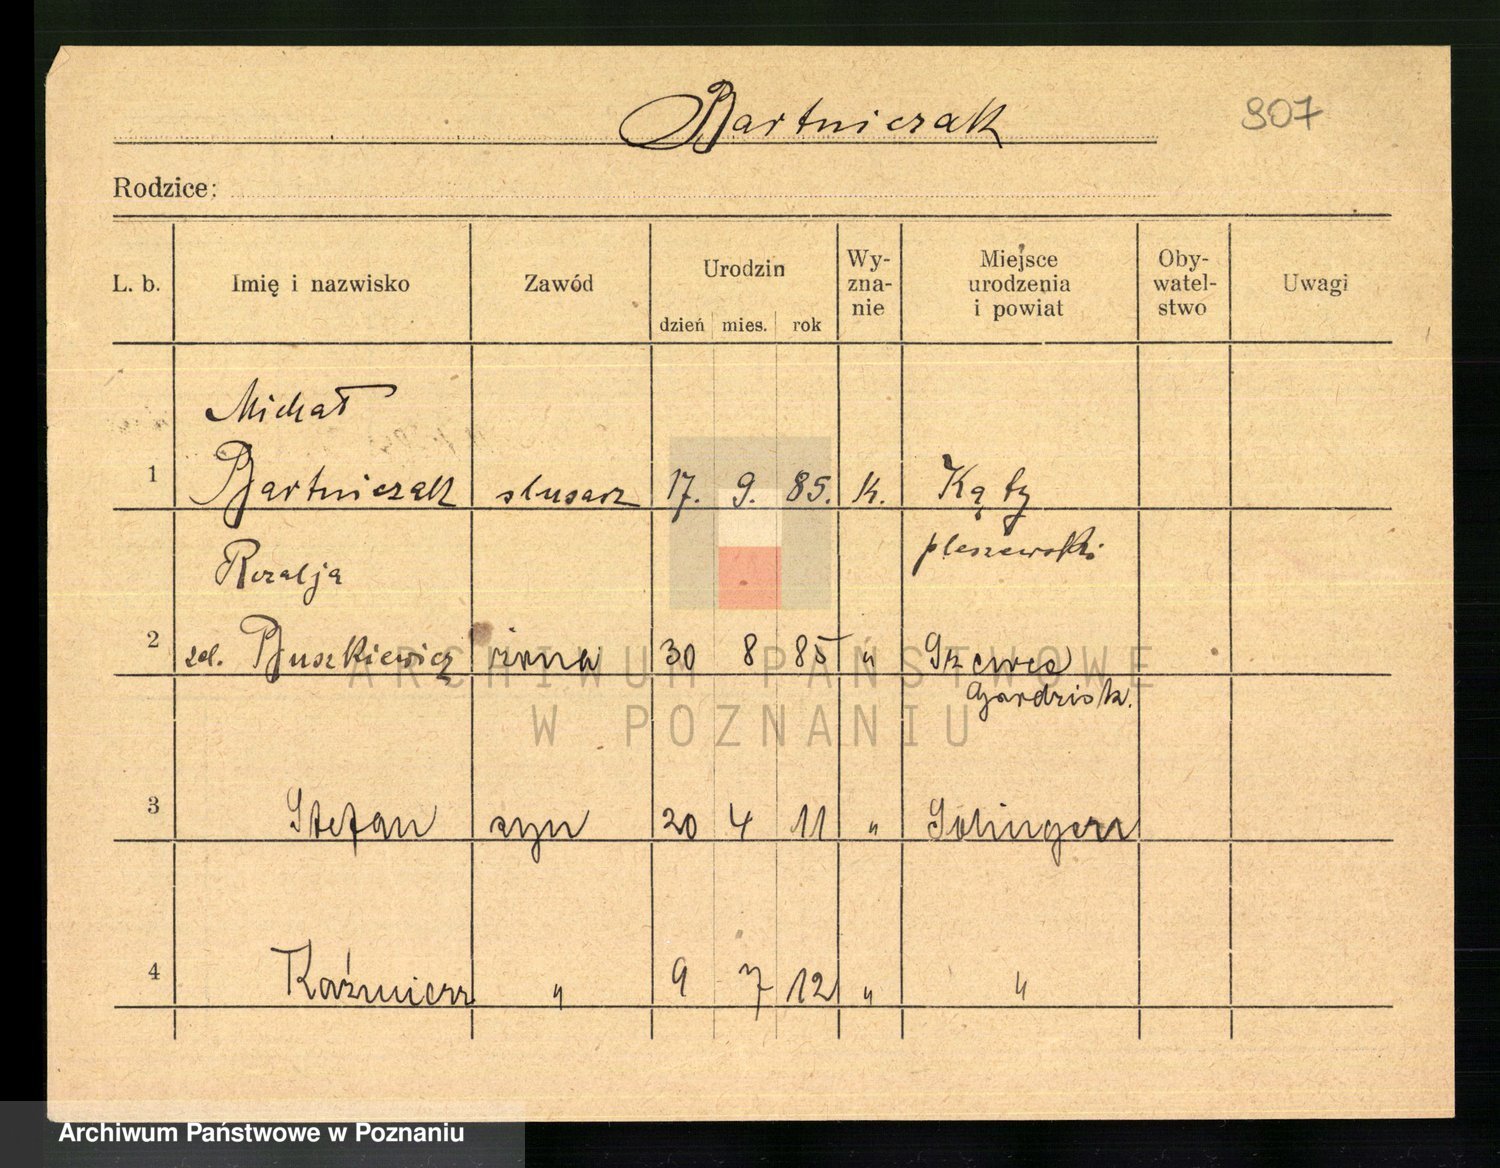 Bartniczak
907
Rodzice:
L. b. Imię i nazwisko Zawód Urodzin dzień mies. rok Wy-zna-nie Miejsce urodzenia i powiat Oby-watel-stwo Uwagi
Michał
1 Bartniczak slusarz 17. 9. 85. k. Kąty
pleszewski
Rozalja
2 Buszkiewicz żona 30 8 85 "
3 Stefan syn 20 4 11 " Solingen
4 Kaźmierz " 9 7 12 " "
ARCHIWUM PAŃSTWOWE
W POZNANIU
Archiwum Państwowe w Poznaniu